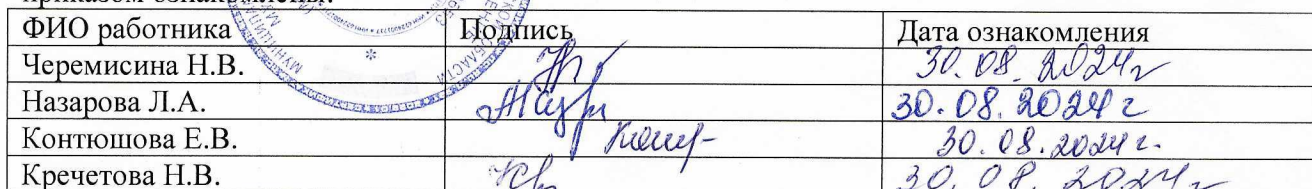 приказом ознакомлены:
ФИО работника Подпись Дата ознакомления
Черемисина Н.В. 30.08.2024г
Назарова Л.А. 30.08.2024 г
Контюшова Е.В. 30.08.2024 г.
Кречетова Н.В. 30.08.2024г